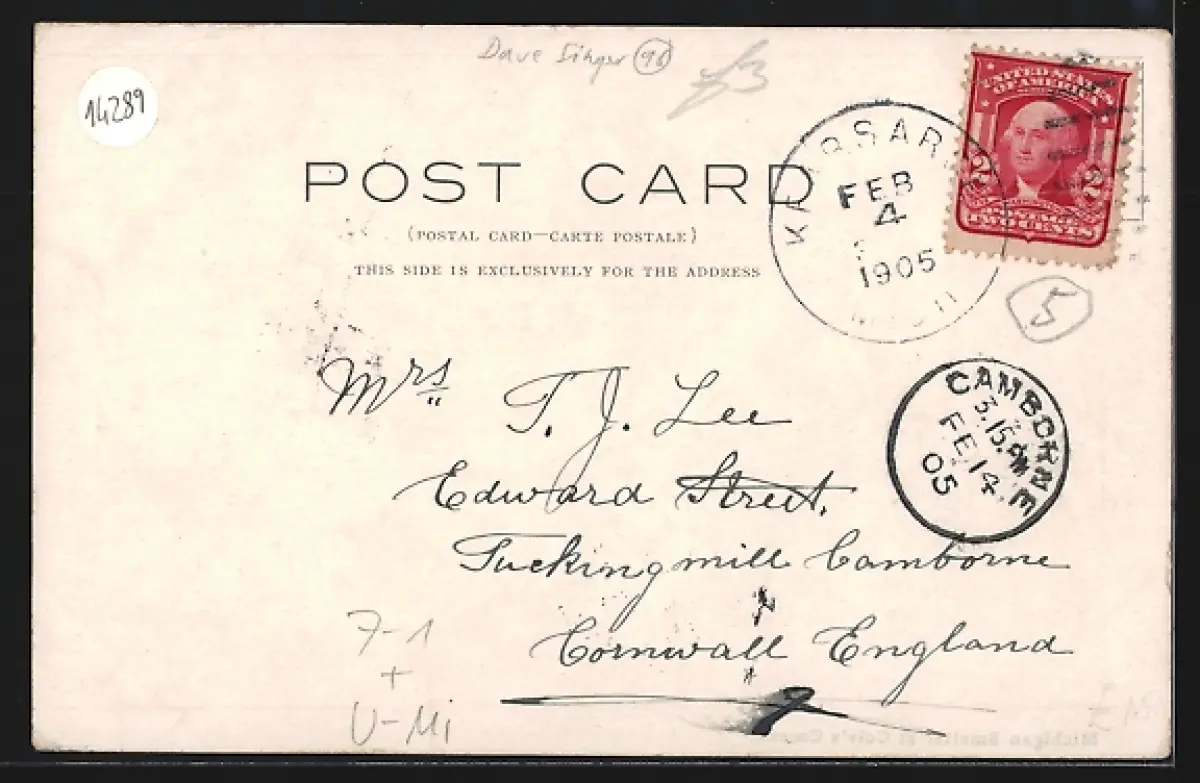 Dave Singer 96
£3
14289
UNITED STATES
OF AMERICA
2 2
POSTAGE
TWO CENTS
POST CARD
(POSTAL CARD—CARTE POSTALE)
THIS SIDE IS EXCLUSIVELY FOR THE ADDRESS
FEB
4
1905
MICH
5
CAMBORNE
3.15 PM
FE 14
05
Mrs T. J. Lee
Edward Street,
Tuckingmill Camborne
Cornwall England
7-1
+
U-Mi